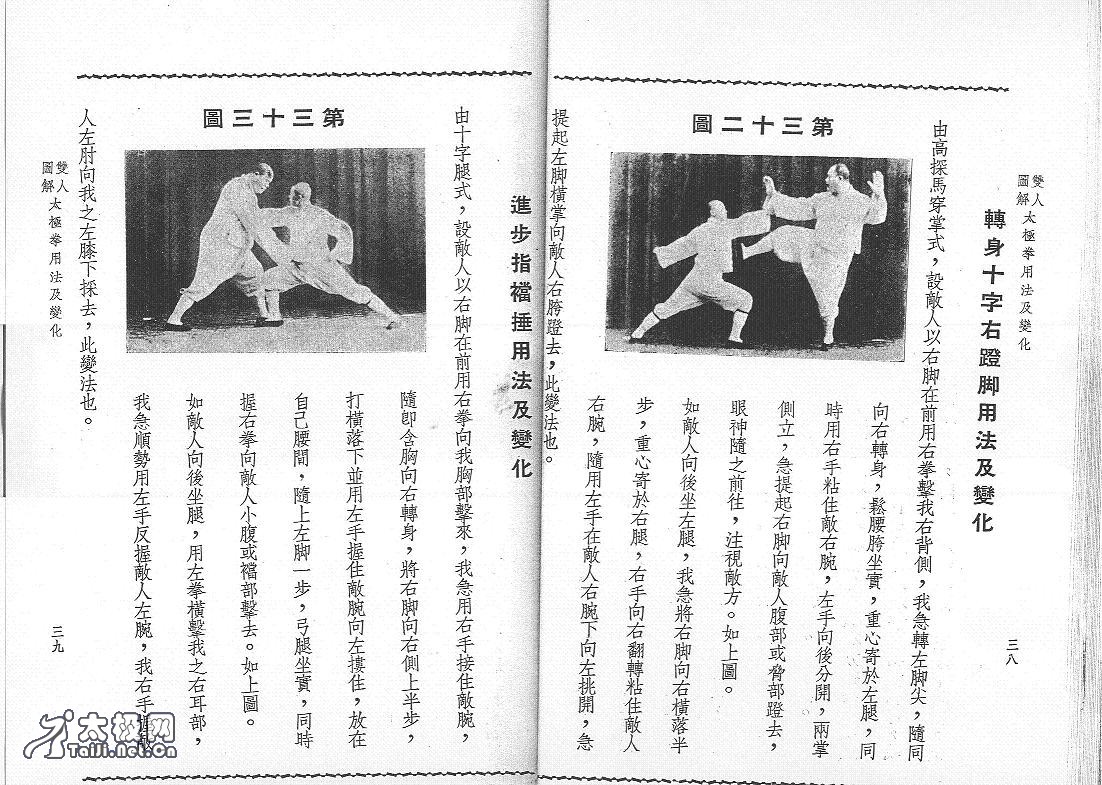 雙人圖解 太極拳用法及變化
轉身十字右蹬脚用法及變化
由高探馬穿掌式，設敵人以右脚在前用右拳擊我右背側，我急轉左脚尖，隨同
向右轉身，鬆腰胯坐實，重心寄於左腿，同
時用右手粘住敵右腕，左手向後分開，兩掌
側立，急提起右脚向敵人腹部或脅部蹬去，
眼神隨之前往，注視敵方。如上圖。
如敵人向後坐左腿，我急將右脚向右橫落半
步，重心寄於右腿，右手向右翻轉粘住敵人
右腕，隨用左手在敵人右腕下向左挑開，急
提起左脚橫掌向敵人右胯蹬去，此變法也。
第三十二圖
三八
進步指襠捶用法及變化
由十字腿式，設敵人以右脚在前用右拳向我胸部擊來，我急用右手接住敵腕，
隨卽含胸向右轉身，將右脚向右側上半步，
打橫落下並用左手握住敵腕向左摟住，放在
自己腰間，隨上左脚一步，弓腿坐實，同時
握右拳向敵人小腹或襠部擊去。如上圖。
如敵人向後坐腿，用左拳橫擊我之右耳部，
我急順勢用左手反握敵人左腕，我右手
人左肘向我之左膝下採去，此變法也。
第三十三圖
雙人圖解 太極拳用法及變化
三九
太极网
Taiji.net.cn